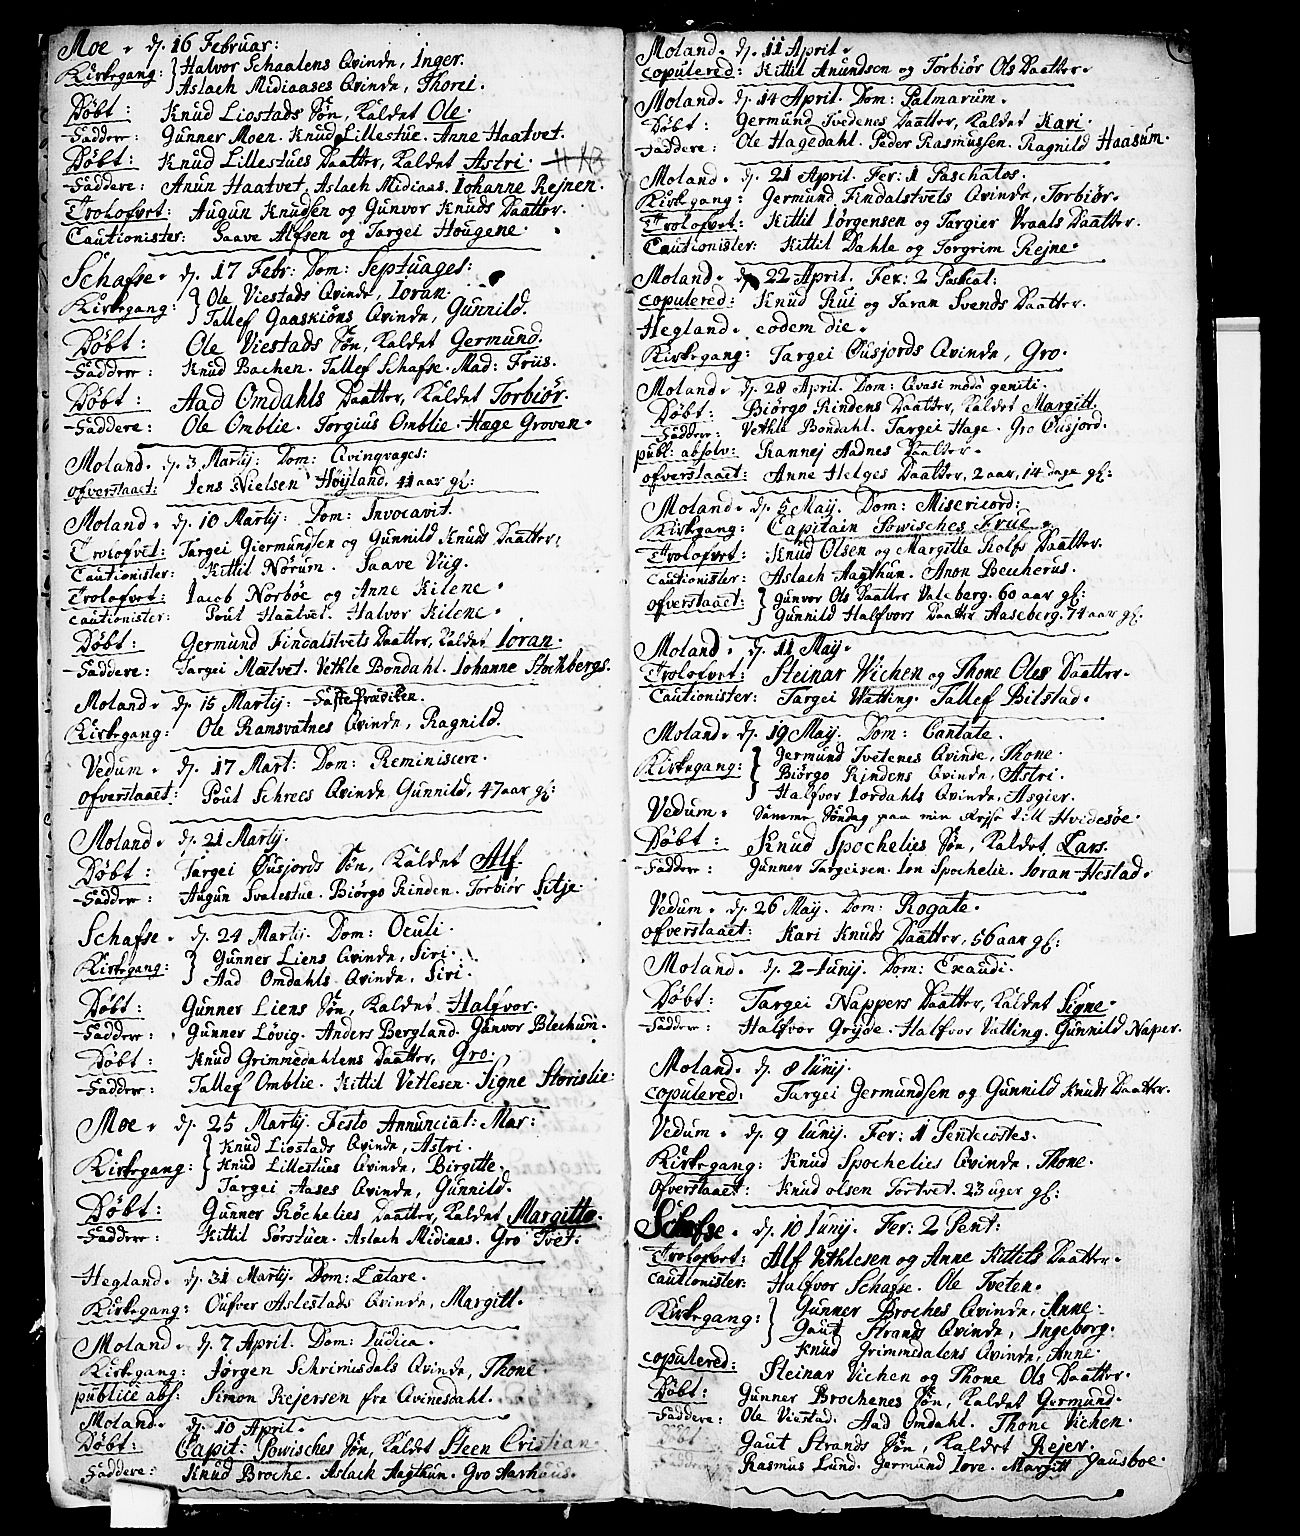 Moe. d. 16 Februar:
Kirkegang: Halvor Schaalens Qvinde, Inger.
Aslach Midiaases Qvinde, Thorei.
Døbt: Knud Liostads Søn, kaldet Ole.
Faddere: Gunner Moen. Knud Lillestue. Anne Haatvet.
Døbt: Knud Lillestues Daatter, kaldet Astri.
Faddere: Anun Haatvet. Aslach Midiaas. Iohanne Rejnen.
Trolofvet: Augun Knudsen og Gunvor Knuds Daatter.
Cautionister: Saave Alfsen og Targei Hougene.
Schafse. d. 17 Febr: Dom: Septuages:
Kirkegang: Ole Viestads Qvinde, Ioran.
Tallef Gaaskiøns Qvinde, Gunnild.
Døbt: Ole Viestads Søn, kaldet Germund.
Faddere: Knud Bachen. Tallef Schafse. Mad: Friis.
Døbt: Aad Omdahls Daatter, kaldet Torbiør.
Faddere: Ole Omblie. Torgius Omblie. Hæge Groven.
Moland. d. 3 Martij: Dom: Qvinqvages:
Ofverstaaet: Iens Nielsen Høijland, 41 aar gl:
Moland. d. 10 Martij: Dom: Invocavit.
Trolofvet: Targei Giermundsen og Gunnild Knuds Daatter.
Cautionister: Kittil Norum. Saave Viig.
Trolofvet: Iacob Norbøe og Anne Kilene.
Cautionister: Poul Haatvet. Halvor Kilene.
Døbt: Germund Findalstvets Daatter, kaldet Ioran.
Faddere: Targei Mælvet. Vethle Bondahl. Iohanne Stochbergs.
Moland. d. 15 Martij: Faste Prædiken.
Kirkegang: Ole Ramsvatnes Qvinde, Ragnild.
Vedum. d. 17 Mart: Dom: Reminiscere.
Ofverstaaet: Poul Schrees Qvinde Gunnild, 47 aar gl:
Moland. d. 21 Martij.
Døbt: Targei Øusjords Søn, kaldet Alf.
Fadder: Augun Svalestue. Biørgo Rinden. Torbiør Sitje.
Schafse. d. 24 Martij. Dom: Oculi.
Kirkegang: Gunner Liens Qvinde, Siri.
Aad Omdahls Qvinde, Siri.
Døbt: Gunner Liens Søn, kaldet Halfvor.
Fadder: Gunner Løvig. Anders Bergland. Gunvor Blechum.
Døbt: Knud Grimmedahlens Daatter, Gro.
Fadder: Tallef Omblie. Kittil Vetlesen. Signe Storislie.
Moe. d. 25 Martij. Festo Annunciat: Mar:
Kirkegang: Knud Liostads Qvinde, Astri.
Knud Lillestues Qvinde, Birgitte.
Targei Aases Qvinde, Gunnild.
Døbt: Gunner Røchelies Daatter, kaldet Margitte.
Fadder: Kittil Sørstuen. Aslach Midiaas. Gro Tvet.
Hegland. d. 31 Martij. Dom: Lætare.
Kirkegang: Oufver Aslestads Qvinde, Margitt.
Moland. d. 7 April. Dom: Iudica.
Kirkegang: Iørgen Schrimsdals Qvinde, Thone
publice abs: Simon Rejersen fra Qvinesdahl.
Moland. d. 10 April.
Døbt: Capit: Powisches Søn, kaldet Steen Cristian.
Faddere: Knud Broche. Aslach Aagthun. Gro Aarhuus.
Moland. d. 11 April.
copulered: Kittil Anundsen og Torbiør Ols Daatter.
Moland. d. 14 April. Dom: Palmarum.
Døbt: Germund Tvedenes Daatter, kaldet Kari.
Faddere: Ole Hagedahl. Peder Rasmussen. Ragnild Haasum.
Moland. d. 21 April. Fer: 1 Paschatos.
Kirkegang: Germund Findalstvets Qvinde, Torbiør.
Trolofvet: Kittil Iørgensen og Targier Vraals Daatter.
Cautionister: Kittil Dahle og Torgrim Rejne.
Moland. d. 22 April. Fer: 2 Paschat:
copulered: Knud Rui og Taran Svends Daatter.
Hegland. eodem die.
Kirkegang: Targei Øusjords Qvinde, Gro.
Moland. d. 28 April. Dom: Qvasi modo geniti.
Døbt: Biørgo Rindens Daatter, kaldet Margitt.
Fadder: Vethle Bondahl. Targei Hage. Gro Øusjord.
publ: absolv: Rannej Aadnes Daatter.
Ofverstaaet: Anne Helges Daatter, 2 aar, 14 dage gl:
Moland. d. 5 Maij. Dom: Misericord:
Kirkegang: Capitain Powisches Frue.
Trolofvet: Knud Olsen og Margitte Rolfs Daatter.
Cautionister: Aslach Aagthun. Anon Beuherus.
Ofverstaaet: Gunvor Ols Daatter Valeberg. 60 aar gl:
Gunnild Halfvors Daatter Aaseberg. 74 aar gl:
Moland. d. 11 Maij.
Trolofvet: Steinar Vichen og Thone Oles Daatter.
Cautionister: Targei Vatting. Tallef Bilstad.
Moland. d. 19 Maij. Dom: Cantate.
Kirkegang: Germund Tvetenes Qvinde, Thone.
Biørgo Rindens Qvinde, Astri.
Halfvor Iordahls Qvinde, Asgier.
Vedum. Samme Søndag paa min Rejse till Hvidesøe.
Døbt: Knud Spochelies Søn, kaldet Lars.
Fadder: Gunner Targeisen. Ion Spochelie. Ioran Hestad.
Vedum. d. 26 Maij. Dom: Rogate.
Ofverstaaet: Kari Knuds Daatter, 56 aar gl:
Moland. d. 2 Iunij. Dom: Exaudi.
Døbt: Targei Nappers Daatter, kaldet Signe.
Fadder: Halfvor Grijde. Halfvor Vatting. Gunnild Naper.
Moland. d. 8 Iunij.
copulered: Targei Germundsen og Gunnild Knuds Daatter.
Vedum. d. 9 Iunij. Fer: 1 Pentecostes.
Kirkegang: Knud Spochelies Qvinde, Thone.
Ofverstaaet: Knud Olsen Tortvet. 23 uger gl:
Schafse. d. 10 Iunij. Fer: 2 Pent:
Trolofvet: Alf Vethlesen og Anne Kittils Daatter.
Cautionister: Halfvor Schafse. Ole Tveten.
Kirkegang: Gunner Broches Qvinde, Anne.
Gaut Strands Qvinde, Ingeborg.
Knud Grimmedalens Qvinde, Anne.
copulered: Steinar Vichen og Thone Ols Daatter.
Døbt: Gunner Brochenes Søn, kaldet Germund.
Faddere: Ole Viestad. Aad Omdahl. Thone Vichen.
Døbt: Gaut Strands Søn, kaldet Rejer.
Faddere: Rasmus Lund. Germund Iore. Margitt Gausboe.